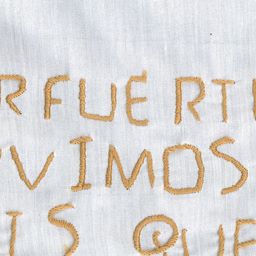 R FUE RTE
VIMOS
IS QUE